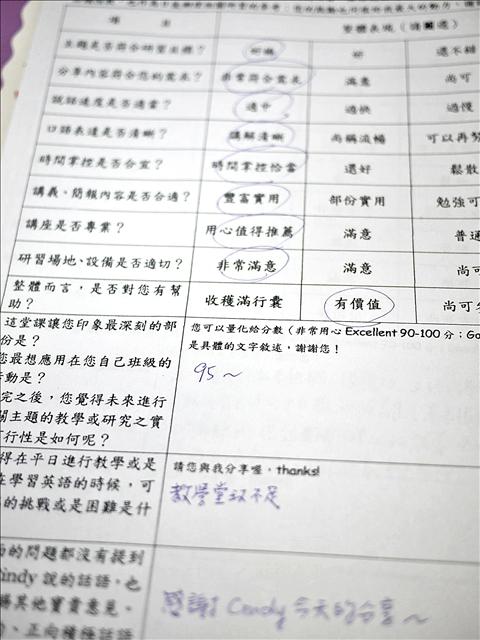 整體表現(請圈選)
主題是否符合研習主題? 明確 好 還不錯
分享內容符合您的需求? 非常符合需求 滿意 尚可
說話速度是否適當? 適中 過快 過慢
口語表達是否清晰? 講解清晰 尚稱流暢 可以再努
時間掌控是否合宜? 時間掌控恰當 還好 鬆散
講義、簡報內容是否合適? 豐富實用 部份實用 勉強可
講座是否專業? 用心值得推薦 滿意 普通
研習場地、設備是否適切? 非常滿意 滿意 尚可
整體而言,是否對您有幫助? 收穫滿行囊 有價值 尚可
這堂課讓您印象最深刻的部
份是?
您最想應用在您自己班級的
活動是?
完之後,您覺得未來進行
關主題的教學或研究之實
行性是如何呢?
您可以量化給分數(非常用心 Excellent 90-100 分;Go
是具體的文字敘述,謝謝您!
95~
得在平日進行教學或是
在學習英語的時候,可
的挑戰或是困難是什
請您與我分享喔,thanks!
教學堂玟不足
的問題都沒有提到
indy 說的話語,也
其他寶貴意見。
、正向積極話語
感謝 Cindy 今天的分享~